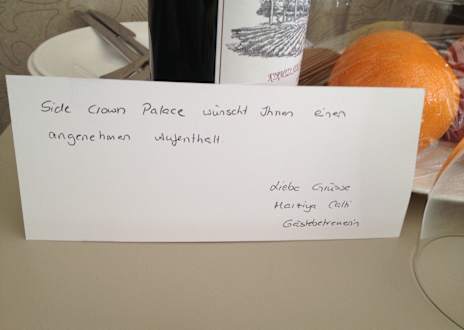 Side Crown Palace wünscht Ihnen einen
angenehmen Aufenthalt
Liebe Grüsse
Gästebetreuerin